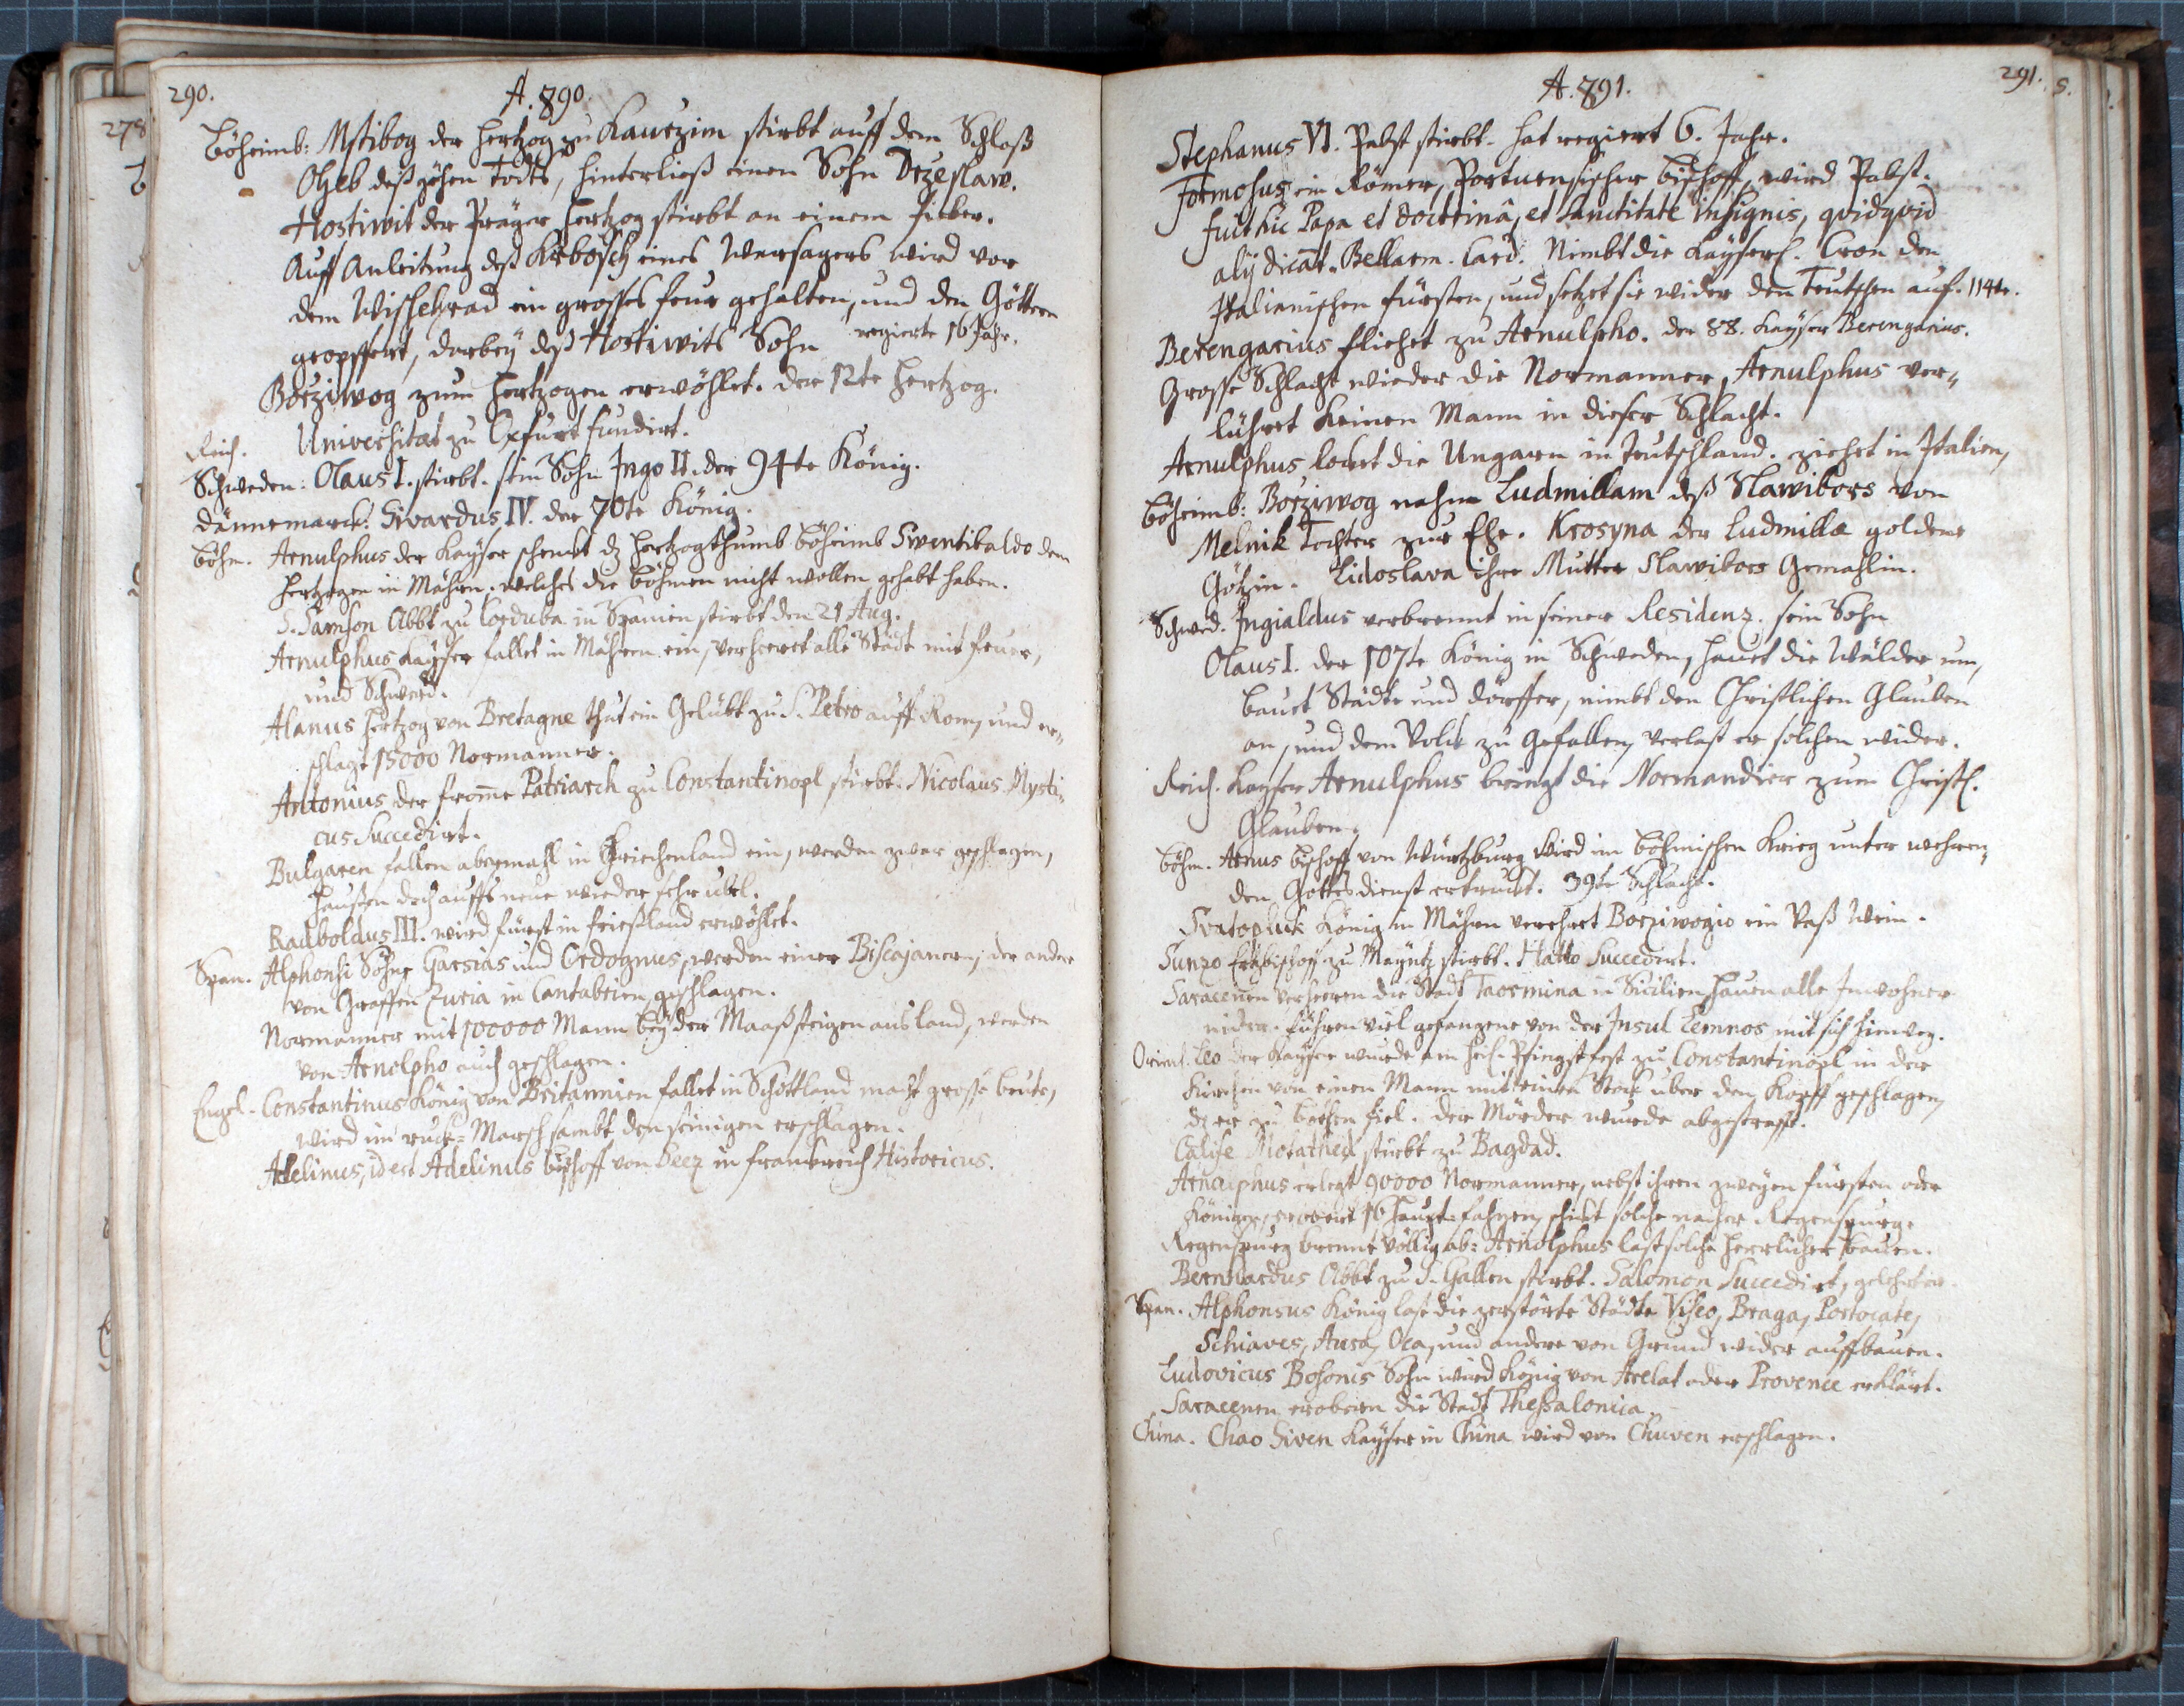 290.
A. 890.
278
Böheimb: Mstibog der Hertzog zu Kaurzim stirbt auff dem Schloß
Ohleb deß gähen Todts, hinterließ einen Sohn Drzeslaw.
Hostiwit der Präger Hertzog stirbt an einem fieber.
Auff Anleitung deß Krbosch eines Warsagers wird vor
dem Wissehrad ein grosses feur gehalten, und den Göttern
geopffert, darbey deß Hostiwits Sohn regierte 16 Jahr.
Borziwog zum Hertzogen erwöhlet. der 12te Hertzog.
Reich. Universitat zu Oxfurt fundirt.
Schweden: Olaus I. stirbt. sein Sohn Ingo II. der 94te König.
Dännemarck: Sivardus IV. der 70te König.
Böhm. Arnulphus der Kayser schenckt dz Hertzogthumb Böheimb Swentibaldo dem
Hertzogen in Mähren. welches die Böhmen nicht wollen gehabt haben.
S. Samson Abbt zu Corduba in Spanien stirbt den 21 Aug.
Arnulphus Kayser fallet in Mähren ein, verheeret alle Städt mit feuer,
und Schwerd.
Alanus Hertzog von Bretagne thut ein Gelübt zu S. Petro auff Rom, und er-
schlagt 15000 Normanner.
Antonius der fromme Patriarch zu Constantinopl stirbt. Nicolaus Mysti-
cus Succedirt.
Bulgaren fallen abermahl in Griechenland ein, werden zwar geschlagen,
hausten doch auffs neue wieder sehr übel.
Radboldus III. wird fürst in frießland erwöhlet.
Span. Alphonsi Söhne Garsias und Ordognus, werden einer Biscajanern, der ander
von Graffen Zuria in Cantabrien geschlagen.
Normanner mit 100000 Mann bey der Maaß steigen aus land, werden
von Arnolpho auch geschlagen.
Engel. Constantinus König von Britannien fallet in Schottland macht grosse beute,
wird im ruck-Marsch sambt den seinigen erschlagen.
Adelinus, id est Adelinus bischoff von Seez in franckreich Historicus.
A. 891.
291.
Stephanus VI. Pabst stirbt. hat regiert 6. Jahr.
Formosus ein Römer, Portuensischer bischoff, wird Pabst.
fuit hic Papa et doctrinâ, et Sanctitate insignis, qvidqvid
alij dicāt. Bellarm. Card. Nimbt die Kayserl. Cron den
Italianischen fürsten, und setzet sie wider den Teutschen auf. 114te.
Berengarius fliehet zu Arnulpho. der 88. Kayser Berengarius.
Grosse Schlacht wieder die Normanner, Arnulphus ver-
lühret keinen Mann in dieser Schlacht.
Arnulphus locket die Ungarn in Teutschland. ziehet in Italien,
Böheimb: Borziwog nahm Ludmillam deß Slawibors von
Melnik Tochter zur Ehe. Krosyna der Ludmilla goldene
Götzin. Lidoslava ihre Mutter Slawibors Gemahlin.
Schwed. Ingialdus verbrennt in seiner Residenz. sein Sohn
Olaus I. der 107te König in Schweden, hauet die Wälder um,
bauet Städte und Dörffer, nimbt den Christlichen Glauben
an, und dem Volck zu gefallen, verlast er solchen wider.
Reich. Kayser Arnulphus bringt die Normandier zum Christl.
Glauben.
Böhm. Arnus bischoff von Würtzburg wird im böhmischen Krieg unter wehren-
den Gottesdienst ertruckt. 39te Schlacht.
Svatopluk König in Mähren verehret Borziwogio ein Vaß Wein.
Sunzo Ertzbischoff zu Mayntz stirbt. Hatto Succedirt.
Saracenen verheeren die Stadt Taormina in Sicilien, hauen alle Inwohner
nider. führen viel gefangene von der Insul Lemnos mit sich hinweg.
Orient. Leo der Kayser wurde am heil. Pfingstfest zu Constantinopl in der
Kirchen von einen Mann mit einen Stock über den Kopff geschlagen,
dz er zu boden fiel. der Mörder wurde abgestrafft.
Calife Motathed stirbt zu Bagdad.
Arnulphus erlegt 90000 Normanner, nebst ihren zweyen fürsten oder
Königen, erobert 16 haupt-fahnen, schickt solche nacher Regenspurg.
Regenspurg brennt völlig ab: Arnolphus last solche herrlicher bauen.
Bernhardus Abbt zu S. Gallen stirbt. Salomon Succedirt, gelehrter.
Span. Alphonsus König last die zerstörte Städte Viseo, Braga, Portocate,
Schiaves, Ausa, Oca, und andere von Grund wider auffbauen.
Ludovicus Bosonis Sohn wird König von Arelat oder Provence erklärt.
Saracenen erobern die Stadt Thessalonica.
China. Chao Siven Kayser in China wird von Chuven erschlagen.